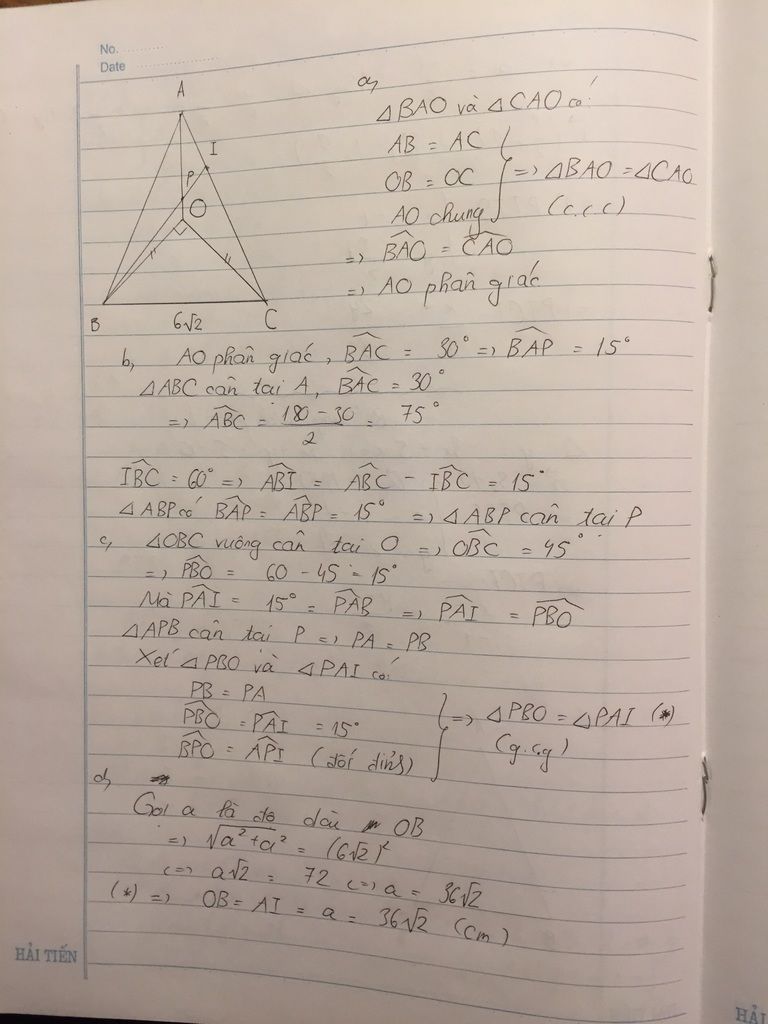 No. ..........
Date ..........
A
I
P
O
B
6√2
C
a,
△BAO và △CAO có:
AB = AC
OB = OC
AO chung
=> △BAO = △CAO
(c.c.c)
=> BAO = CAO
=> AO phân giác
b, AO phân giác, BAC = 30° => BAP = 15°
△ABC cân tại A, BAC = 30°
=> ABC = (180 - 30)/2 = 75°
IBC = 60° => ABI = ABC - IBC = 15°
△ABP có BAP = ABP = 15° => △ABP cân tại P
c, △OBC vuông cân tại O => OBC = 45°
=> PBO = 60 - 45 = 15°
Mà PAI = 15° = PAB => PAI = PBO
△APB cân tại P => PA = PB
Xét △PBO và △PAI có:
PB = PA
PBO = PAI = 15°
BPO = API (đối đỉnh)
=> △PBO = △PAI (*)
(g.c.g)
d,
Gọi a là độ dài OB
=> √a²+a² = (6√2)²
<=> a√2 = 72 <=> a = 36√2
(*) => OB = AI = a = 36√2 (cm)
HẢI TIẾN
HẢI